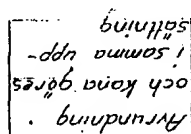 Avrundning
och kona göres
i samma upp-
sättning